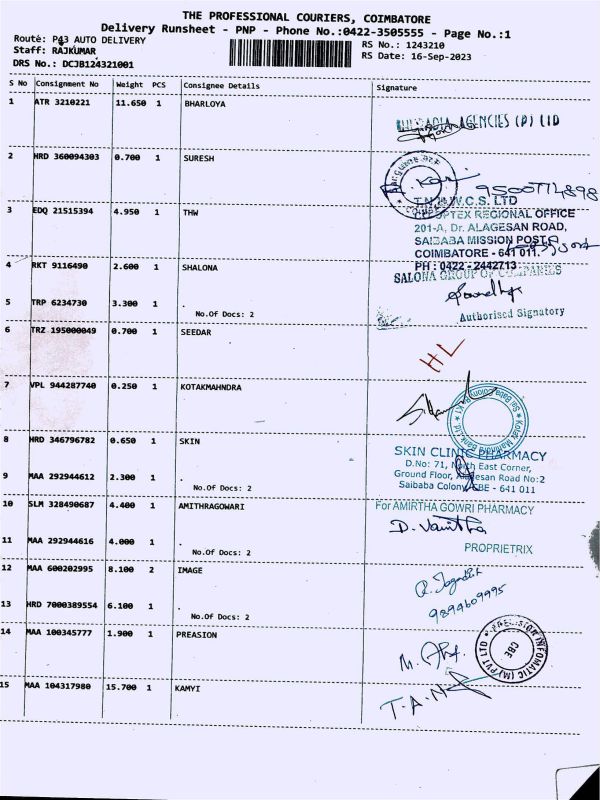 THE PROFESSIONAL COURIERS, COIMBATORE
Delivery Runsheet - PNP - Phone No.:0422-3505555 - Page No.:1
Route: P43 AUTO DELIVERY
RS No.: 1243210
Staff: RAJKUMAR
RS Date: 16-Sep-2023
DRS No.: DCJB124321001
S No Consignment No Weight PCS Consignee Details Signature
1 ATR 3210221 11.650 1 BHARLOYA
AGENCIES (P) LTD
2 HRD 360094303 0.700 1 SURESH
9500774898
T.N.H.W.C.S. LTD
3 EDQ 21515394 4.950 1 THW
CO-OPTEX REGIONAL OFFICE
201-A, Dr. ALAGESAN ROAD,
SAIBABA MISSION POST,
COIMBATORE - 641 011.
PH : 0422 - 2442713
4 RKT 9116490 2.600 1 SHALONA
SALONA GROUP OF COMPANIES
5 TRP 6234730 3.300 1 .
No.Of Docs: 2
Authorised Signatory
6 TRZ 195000049 0.700 1 SEEDAR
HL
7 VPL 944287740 0.250 1 KOTAKMAHNDRA
8 HRD 346796782 0.650 1 SKIN
SKIN CLINIC PHARMACY
D.No: 71, North East Corner,
Ground Floor, Alagesan Road No:2
Saibaba Colony, CBE - 641 011
9 MAA 292944612 2.300 1 .
No.Of Docs: 2
10 SLM 328490687 4.400 1 AMITHRAGOWARI
For AMIRTHA GOWRI PHARMACY
D. Vanitha
11 MAA 292944616 4.000 1 .
No.Of Docs: 2
PROPRIETRIX
12 MAA 600202995 8.100 2 IMAGE
R. Jagadish
9894609995
13 HRD 7000389554 6.100 1 .
No.Of Docs: 2
14 MAA 100345777 1.900 1 PREASION
PRECISION INFOMATIC (M) PVT LTD
CBE
15 MAA 104317980 15.700 1 KAMYI
T.A.N